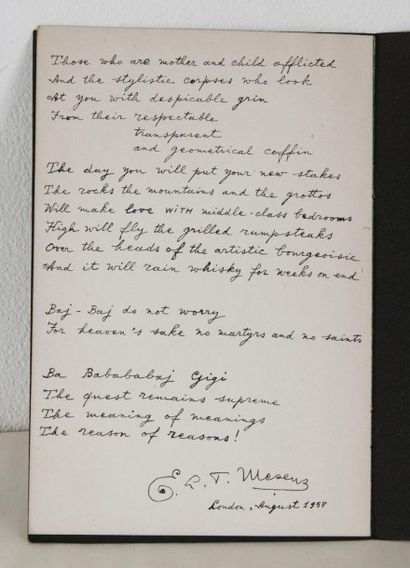 Those who are mother and child afflicted
And the stylistic corpses who look
At you with despicable grin
From their respectable
transparent
and geometrical coffin
The day you will put your new stakes
The rocks the mountains and the grottos
Will make love WITH middle-class bedrooms
High will fly the grilled rumpsteaks
Over the heads of the artistic bourgeoisie
And it will rain whisky for weeks on end
Baj-Baj do not worry
For heaven's sake no martyrs and no saints
Ba Babababaj Gigi
The quest remains supreme
The meaning of meanings
The reason of reasons!
E. L. T. Mesens
London, August 1958